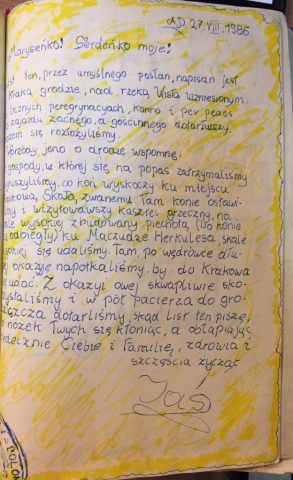 AD 27.VIII.1986.
Maryseńko! Serdeńko moje!
ten, przez umyślnego posłan, napisan jest
Kraka grodzie, nad rzeką Wisłą wzniesionym.
licznych peregrynacyach, konno i per pedes
zajazdu zacnego, a gościnnego dotarłwszy,
się rozłożyliśmy.
jeno o drodze wspomnę:
gospody, w której się na popas zatrzymaliśmy
ruszyliśmy, co koń wyskoczy ku miejscu
Skałą, zwanemu. Tam konie ostawi-
i wizytowawszy kasztel grzeczny, na
wysokiej zbudowany piechotą (bo konie
odbiegły) ku Maczudze Herkulesa, skale
się udaliśmy. Tam, po wędrówce dłu-
okazyję napotkaliśmy, by do Krakowa
udać. Z okazyi owej skwapliwie sko-
rzystaliśmy i w pół pacierza do gro-
dotarliśmy, skąd list ten piszę,
nóżek Twych się kłoniąc, a obłapiając
serdecznie Ciebie i Familię, zdrowia i
szczęścia życząc
Jaś
POLON